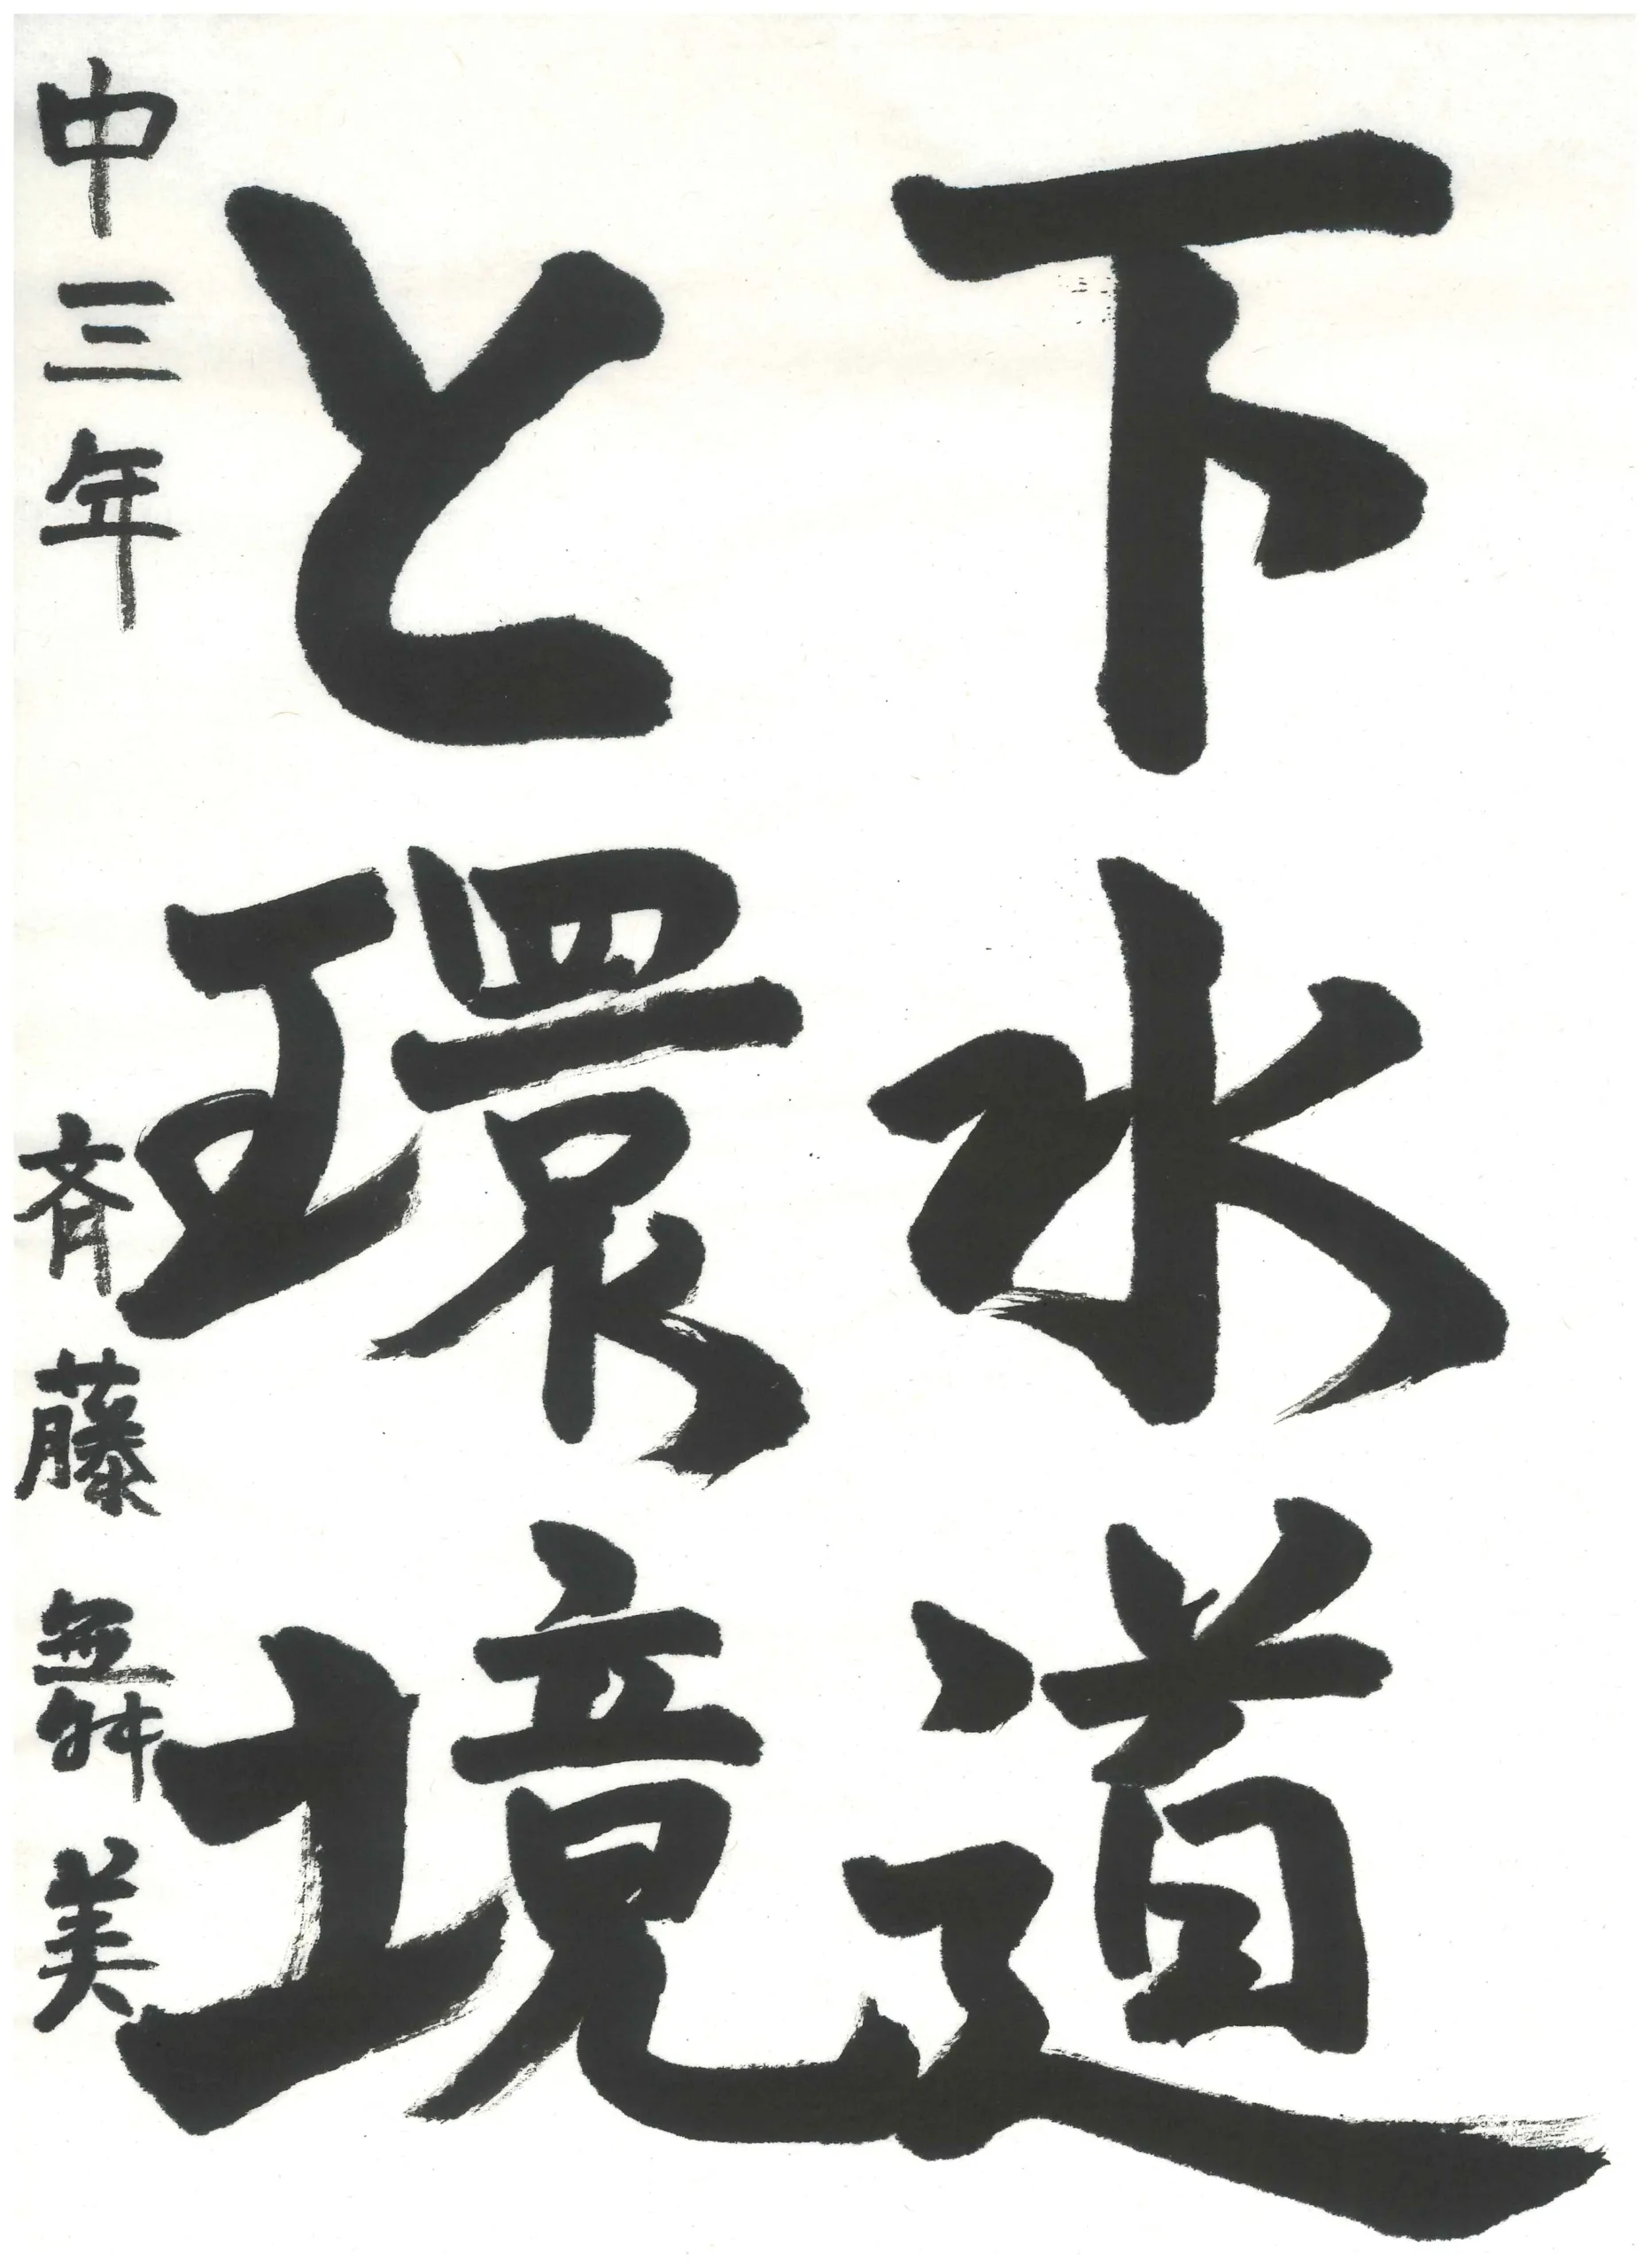 下水道
と環境
中三年 斉藤舞美